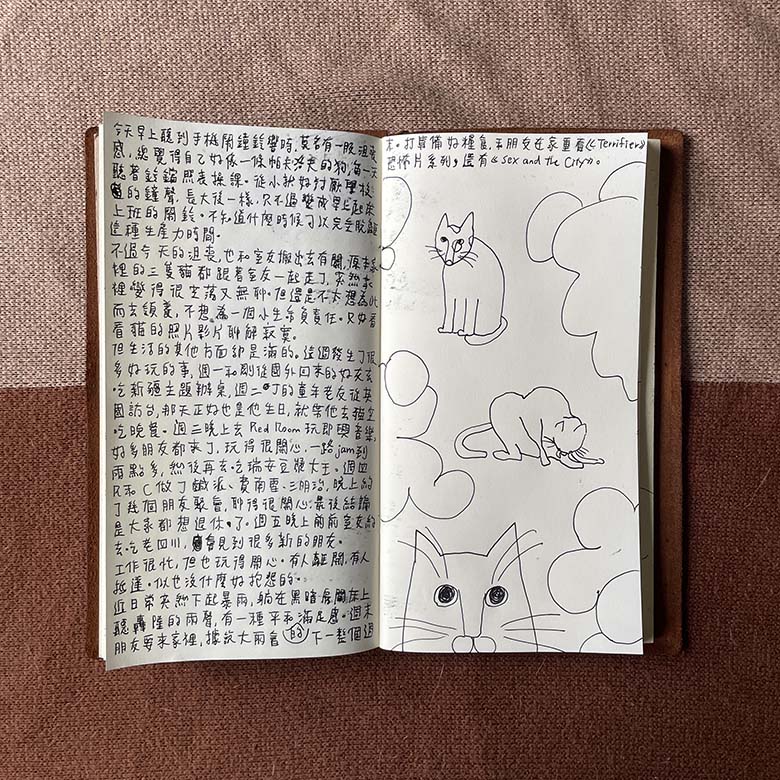 今天早上聽到手機鬧鐘鈴響時，莫名有一股沮喪
感，總覺得自己好像一條帕夫洛夫的狗，每一天
聽著鈴鐺照表操課。從小就好討厭學校
的鐘聲，長大後一樣，只不過變成早上起床
上班的鬧鈴。不知道什麼時候可以完全脫離
這種生產力時間。
不過今天的沮喪，也和室友搬出去有關，原本家
裡的三隻貓都跟著室友一起走了，突然家
裡變得很空落又無聊。但還是不太想為此
而去領養，不想為一個小生命負責任。只好看
看貓的照片影片聊解寂寞。
但生活的其他方面卻是滿的。這週發生了很
多好玩的事，週一和剛從國外回來的好友去
吃新疆主題辦桌，週二的童年老友從英
國訪台，那天正好也是他生日，就帶他去貓空
吃晚餐。週三晚上去Red Room玩即興音樂，
好多朋友都來了，玩得很開心，一路jam到
兩點多，然後再去吃瑞安豆漿大王。週四
R和C做了鹹派、費南雪、三明治，晚上約
了幾個朋友聚會，聊得很開心，最後結論
是大家都想退休了。週五晚上前前室友約
去吃老四川，會見到很多新的朋友。
工作很忙，但也玩得開心。有人離開，有人
抵達。似也沒什麼好抱怨的。
近日常突然下起暴雨，躺在黑暗房間床上
聽轟隆的雨聲，有一種平和滿足感。週末
朋友要來家裡，據說大雨會(的)下一整個週
末。打算備好糧食，和朋友在家重看《Terrifier》
恐怖片系列，還有《Sex and the City》。